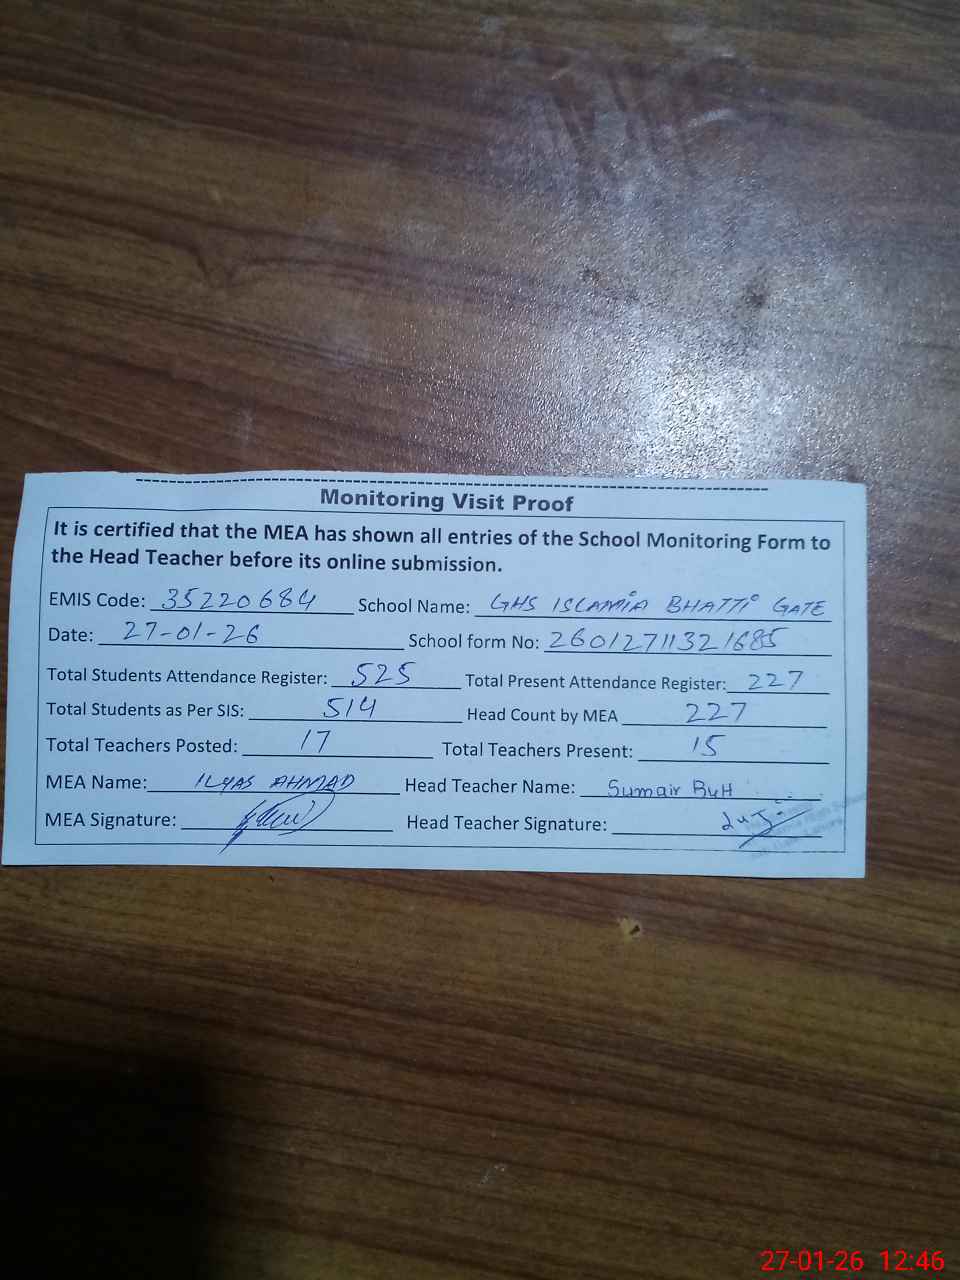 Monitoring Visit Proof
It is certified that the MEA has shown all entries of the School Monitoring Form to
the Head Teacher before its online submission.
EMIS Code: 35220684 School Name: GHS ISLAMIA BHATTI GATE
Date: 27-01-26 School form No: 26012711321685
Total Students Attendance Register: 525 Total Present Attendance Register: 227
Total Students as Per SIS: 514 Head Count by MEA 227
Total Teachers Posted: 17 Total Teachers Present: 15
MEA Name: ILYAS AHMAD Head Teacher Name: Sumair Butt
MEA Signature: Head Teacher Signature:
27-01-26 12:46